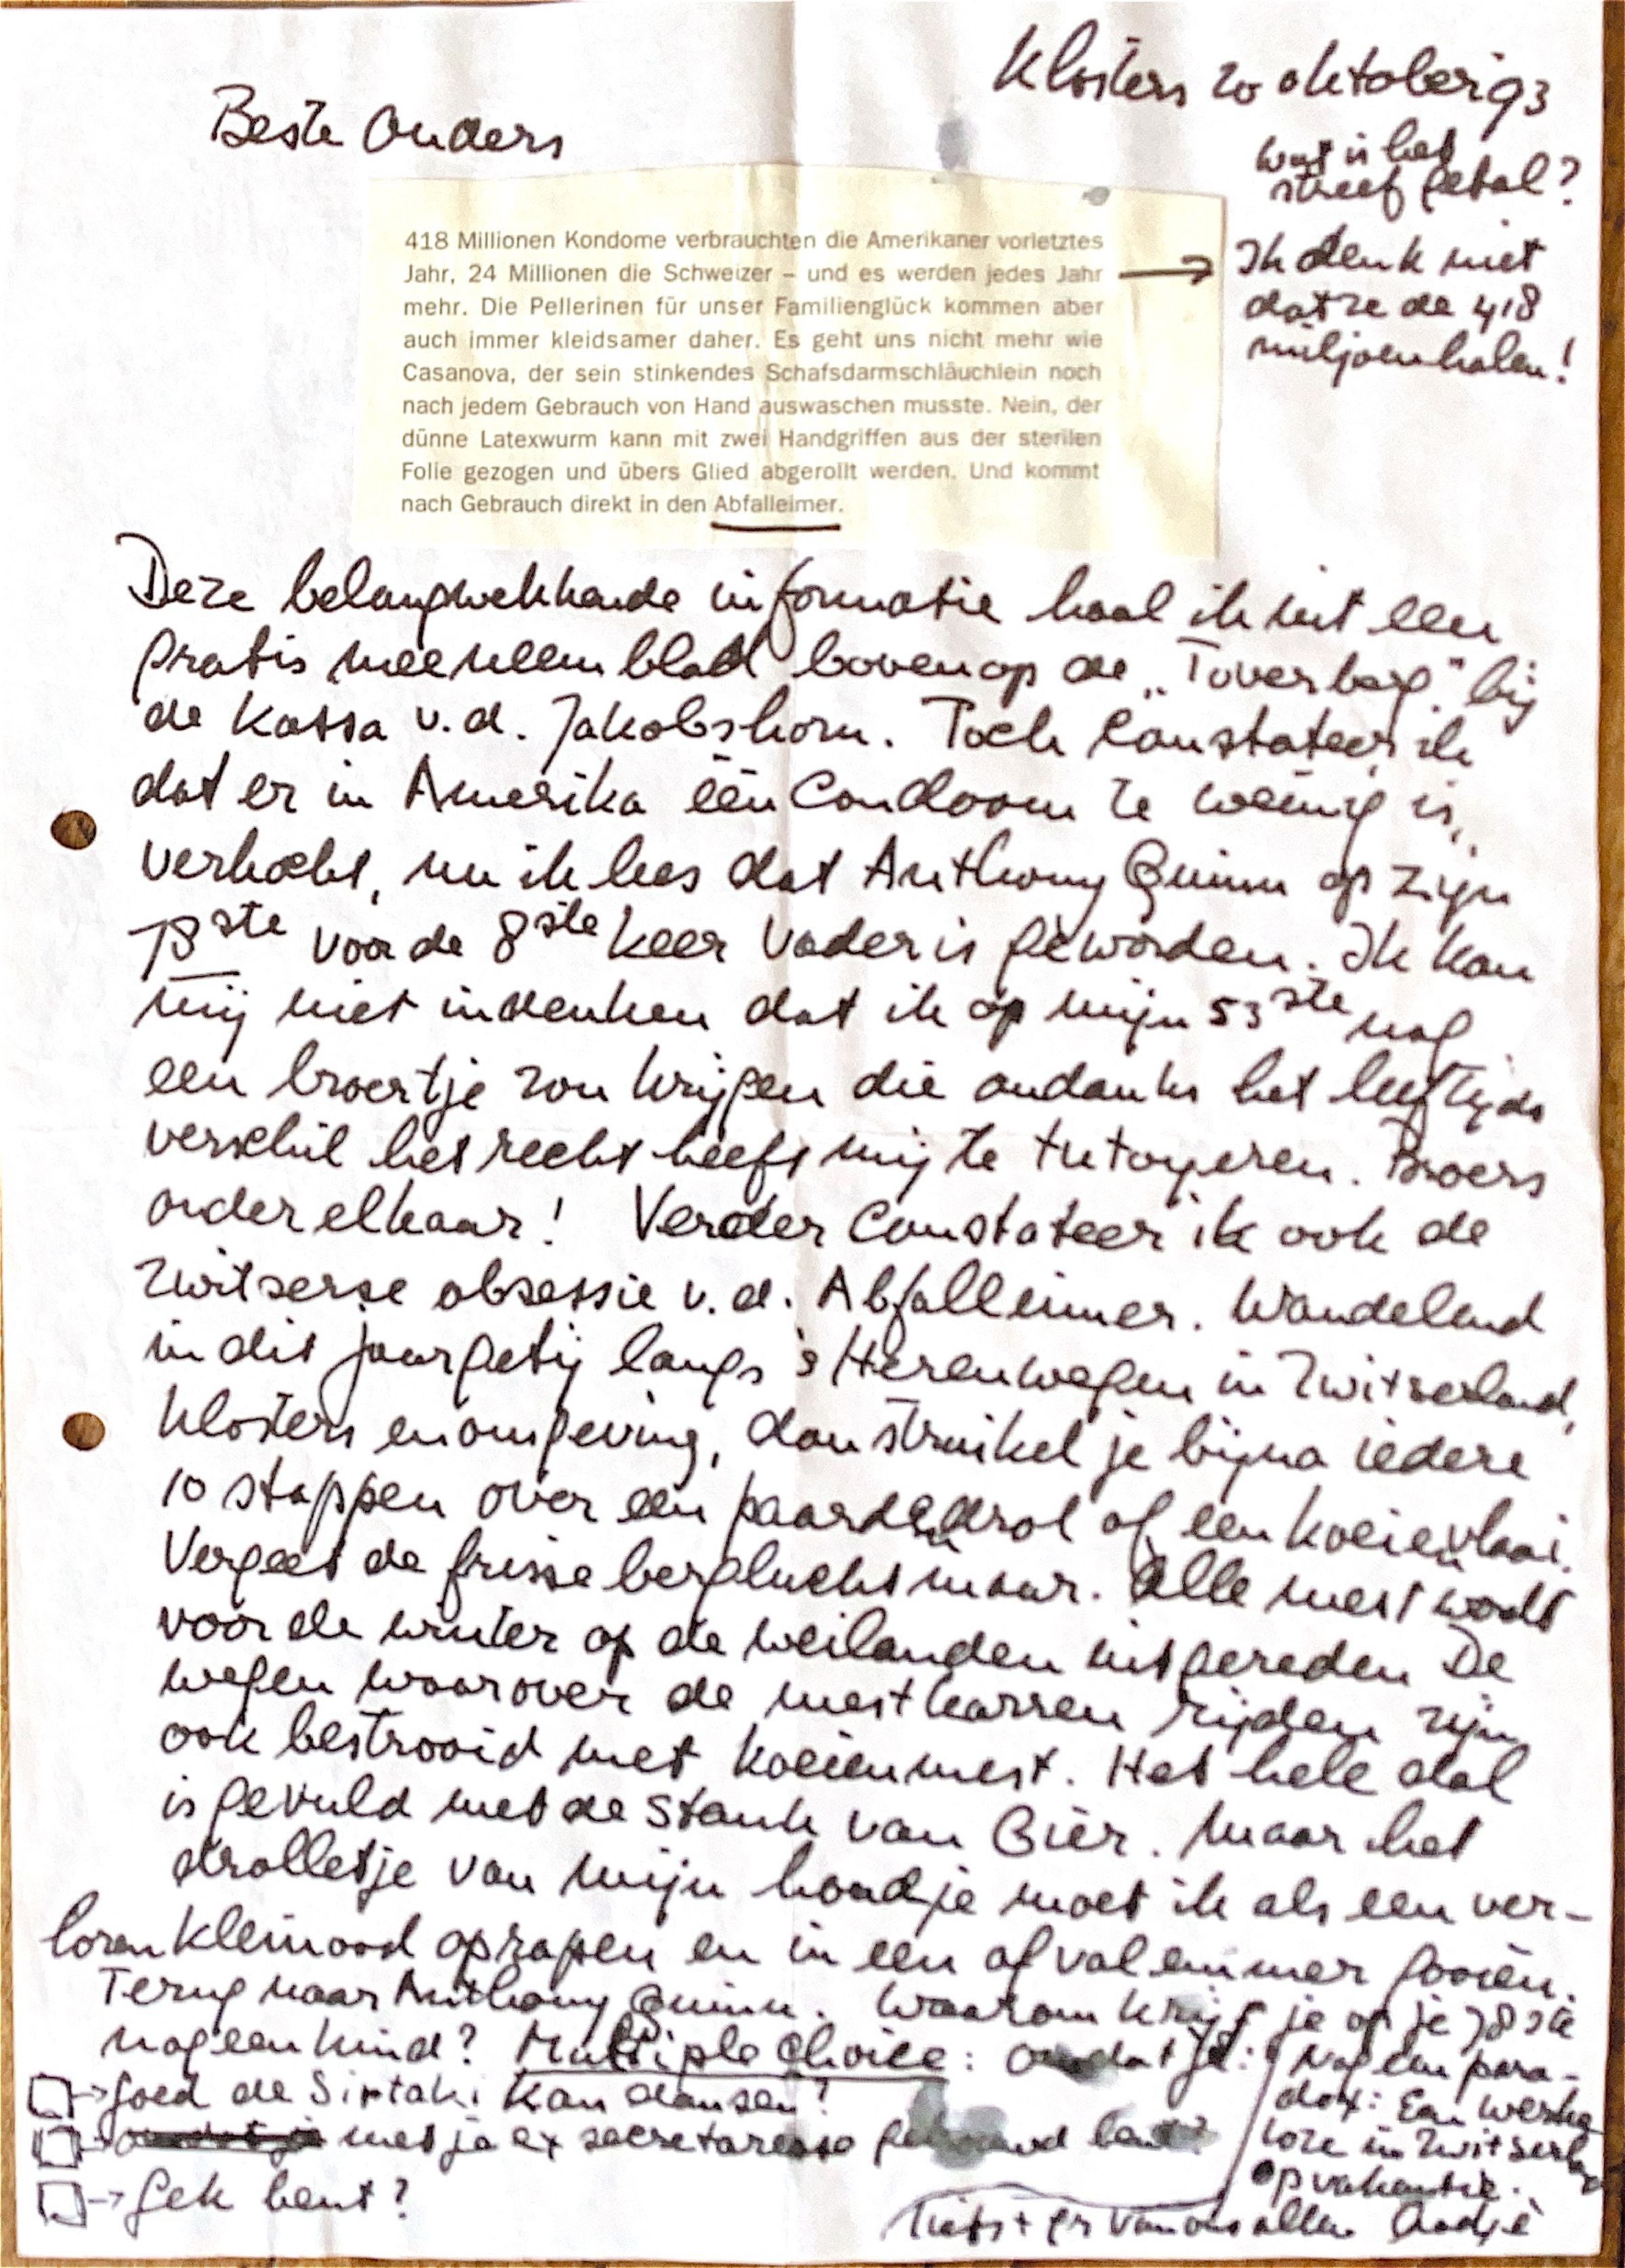 Klosters 20 oktober 93
Beste Ouders
wat is het
streefgetal?
418 Millionen Kondome verbrauchten die Amerikaner vorletztes
Jahr, 24 Millionen die Schweizer – und es werden jedes Jahr
mehr. Die Pellerinen für unser Familienglück kommen aber
auch immer kleidsamer daher. Es geht uns nicht mehr wie
Casanova, der sein stinkendes Schafsdarmschläuchlein noch
nach jedem Gebrauch von Hand auswaschen musste. Nein, der
dünne Latexwurm kann mit zwei Handgriffen aus der sterilen
Folie gezogen und übers Glied abgerollt werden. Und kommt
nach Gebrauch direkt in den Abfalleimer.
→ Ik denk niet
dat ze de 418
miljoen halen!
Deze belangwekkende informatie haal ik uit een
gratis meeneem blad bovenop de „Toverberg" bij
de kassa v.d. Jakobshorn. Toch constateer ik
dat er in Amerika één Condoom te weinig is
verkocht, nu ik lees dat Anthony Quinn op zijn
78ste voor de 8ste keer Vader is geworden. Ik kan
mij niet indenken dat ik op mijn 53ste nog
een broertje zou krijgen die ondanks het leeftijds
verschil het recht heeft mij te tutoyeren. Broers
onder elkaar! Verder Constateer ik ook de
Zwitserse obsessie v.d. Abfalleimer. Wandelend
in dit jaargetij langs 's Herenwegen in Zwitserland,
Klosters en omgeving, dan struikel je bijna iedere
10 stappen over een paardendrol of een koeienvlaai.
Vergeet de frisse berglucht maar. Alle mest wordt
voor de winter op de weilanden uitgereden De
wegen waarover de mestkarren rijden zijn
ook bestrooid met koeienmest. Het hele dal
is gevuld met de stank van Gier. Maar het
drolletje van mijn hondje moet ik als een ver-
loren kleinood oprapen en in een afvalemmer gooien.
Terug naar Anthony Quinn. Waarom krijg je op je 78ste
nog een kind? Multiple Choice: omdat je:
□→ goed de Sirtaki kan dansen?
□→ met je ex secretaresse getrouwd bent?
□→ Gek bent?
Nog een para-
dox: Een werke
loze in Zwitserland
op vakantie.
Liefs + gr van ons allen Aadje